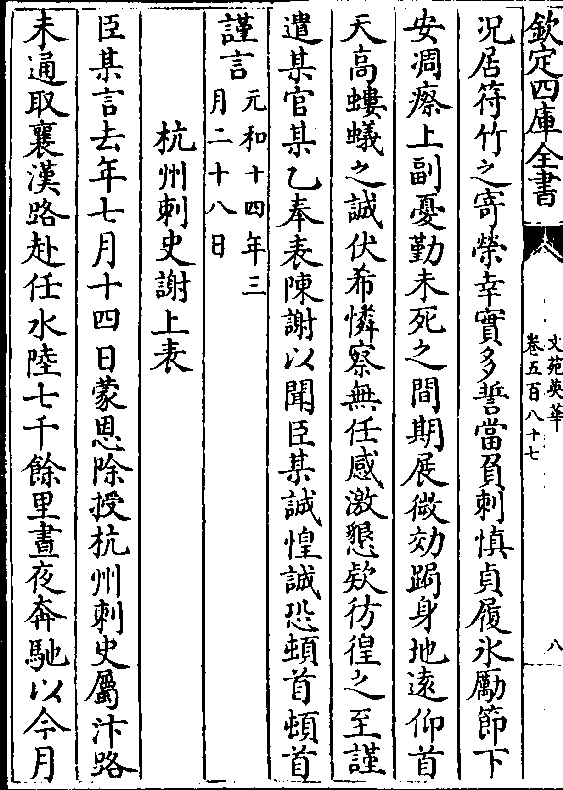 欽定四庫全書
文苑英華
卷五百八十七
八
况居符竹之寄榮幸實多誓當負刺慎貞履氷勵節下
安凋瘵上副憂勤未死之間期展微効跼身地遠仰首
天高螻蟻之誠伏希憐察無任感激懇欵彷徨之至謹
遣某官某乙奉表陳謝以聞臣某誠惶誠恐頓首頓首
謹言元和十四年三
月二十八日
杭州刺史謝上表
臣某言去年七月十四日蒙恩除授杭州刺史屬汴路
未通取襄漢路赴任水陸七千餘里晝夜奔馳以今月